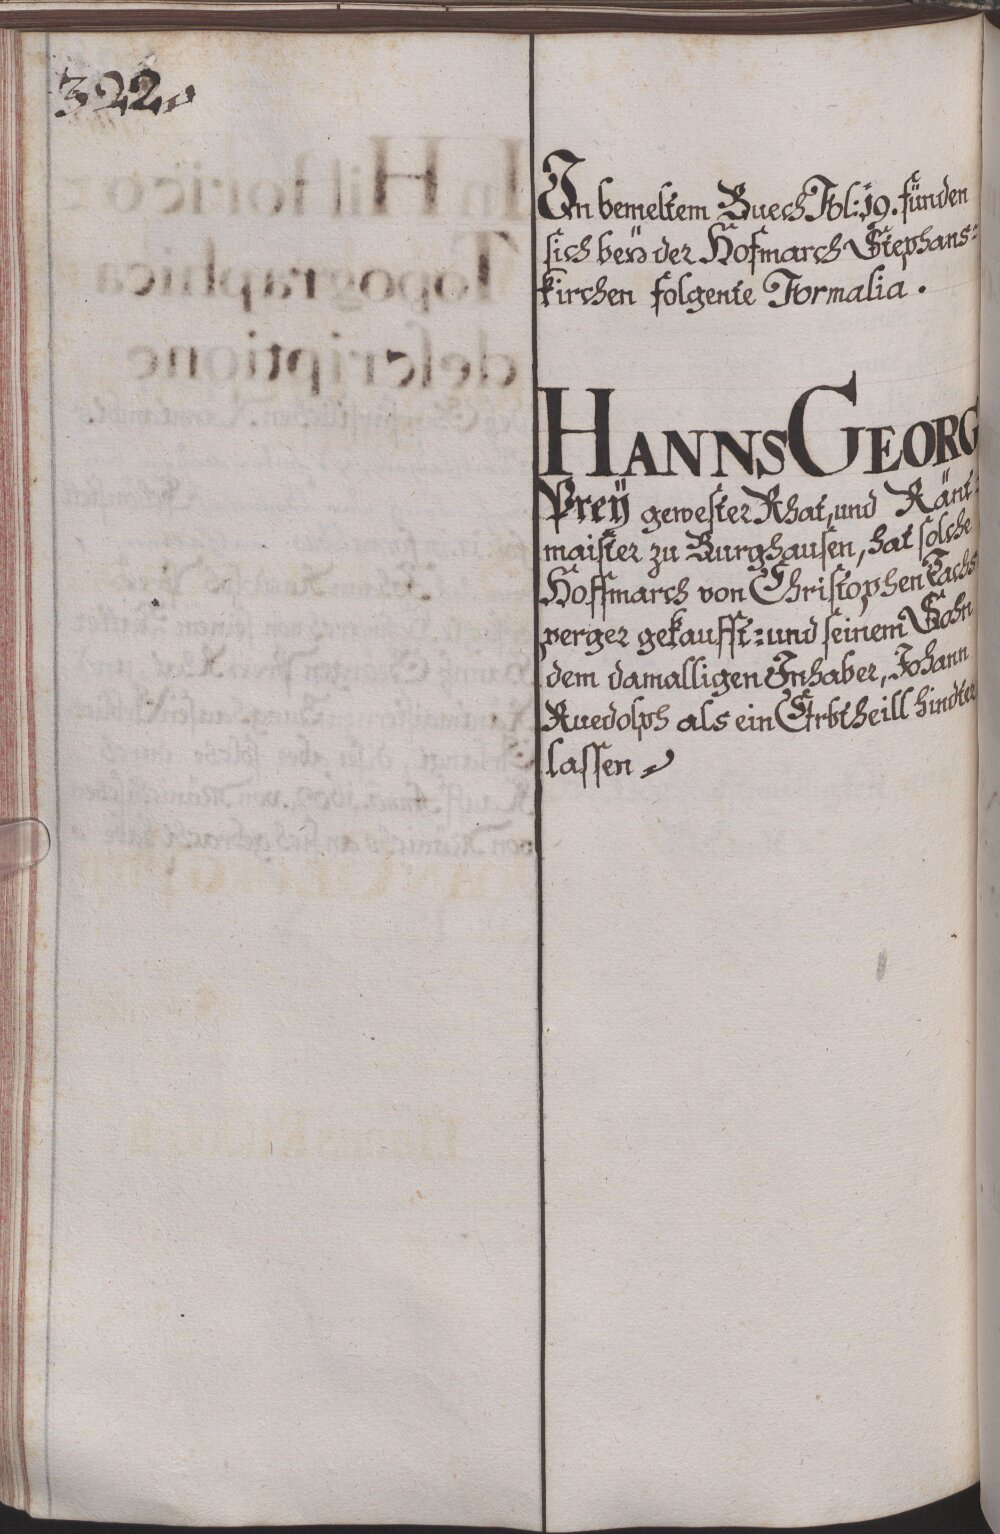 322.
In bemeltem Buech Fol: 19. fünden
sich beÿ der Hofmarch Stephans=
kirchen folgente Formalia.
HANNS GEORG
Preÿ gewester Rhat, und Ränt=
maister zu Burghausen, hat solche
Hoffmarch von Christophen Tachs=
perger gekaufft: und seinem Sohn
dem damalligen Inhaber, Johann
Ruedolph als ein Erbtheill hindter
lassen